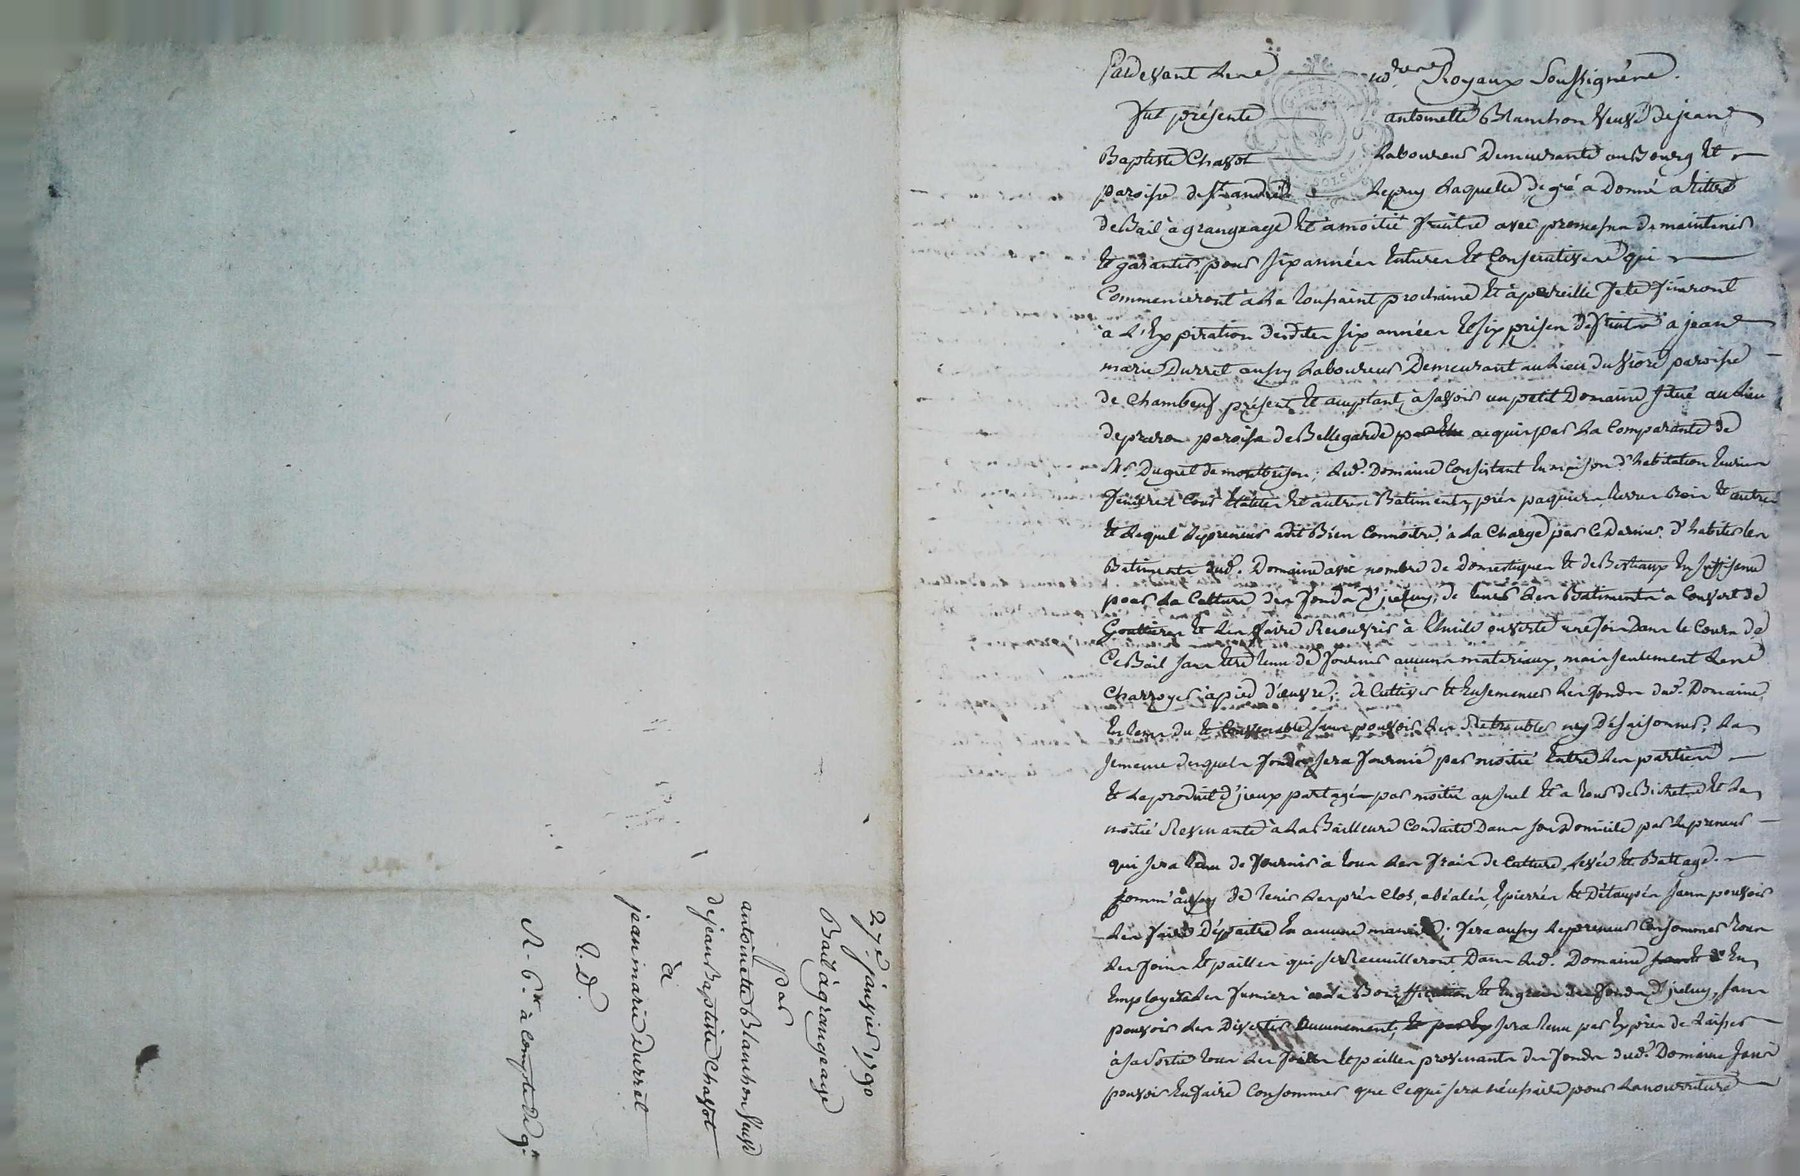 Pardevant les No.res Royaux Soussignés.
fut présente antoinette Blanchon veuve de jean
Baptiste Chavot Laboureur Demeurante au Bourg et
paroisse de St andré Lepuy Laquelle de gré a Donné a titre
de Bail à grangeage et à moitié fruits avec promesse de maintenir
et garantir, pour six années entieres et Consecutives qui
Commenceront à La toussaint prochaine et à pareille fete finiront
à L'Expiration desdites six années et six prises de fruits à jean
marie Durret aussy Laboureur Demeurant au Lieu du paroisse
de Chambeuf présent et acceptant, à savoir un petit Domaine situé au Lieu
de paroisse de Bellegarde acquis par La Comparante de
Mr. Duguet de montbrison, Led. Domaine Consistant en maison d'habitation
fenieres Cour Etables et autres Batiments, prés paquiers terres Bois et autres
et Lequel Lepreneur a dit Bien Connoitre, à La Charge par Ce Dernier d'habiter les
Batiments dud. Domaine avec nombre de Domestiques et de Bestiaux en suffisence
pour La Culture des fonds d'jceluy; de tenir Les Batiments à Couvert de
Gouttieres et Les faire Recouvrir à thuile ouverte une fois Dans le Cours de
Ce Bail sans etre tenu de fournir aucuns materiaux, mais seulement Les
Charroyer à pied d'œuvre; de Cultiver et Ensemencer Les fonds dud. Domaine
en tems du et Convenable sans pouvoir Les Retroubler ny Désaisonner; La
semence desquels fonds sera fournie par moitié Entre Les parties
et Le produit d'jceux partagé par moitié au suel et a tour de Bichet et La
moitié Revenante à La Bailleure Conduite Dans son Domicile par Lepreneur
qui sera tenu de fournir à tous Les frais de Culture, Levée et Battage.
Comm'aussy de tenir Les prés Clos, Epierrés et Détaupés sans pouvoir
Les faire Dépaitre en aucune maniere; fera aussy Lepreneur Consommer tous
Les foins et pailles qui se Recueilleront Dans Led. Domaine En
Employera Les fumiers à la Boniffication et Engrais des fonds d'jceluy, sans
pouvoir Les Divertir Aucunement, sera tenu par Exprès de Laisser
à sa sortie tous Les foins et pailles provenants des fonds dud. Domaine sans
pouvoir En faire Consommer que Ce qui sera nécessaire pour La nourriture
27e. janvier 1790
Bail à grangeage
par
antoinette Blanchon veuve
de jean Baptiste Chavot
à
jean marie Durret
E.D.
R - 6 à Compte de 9